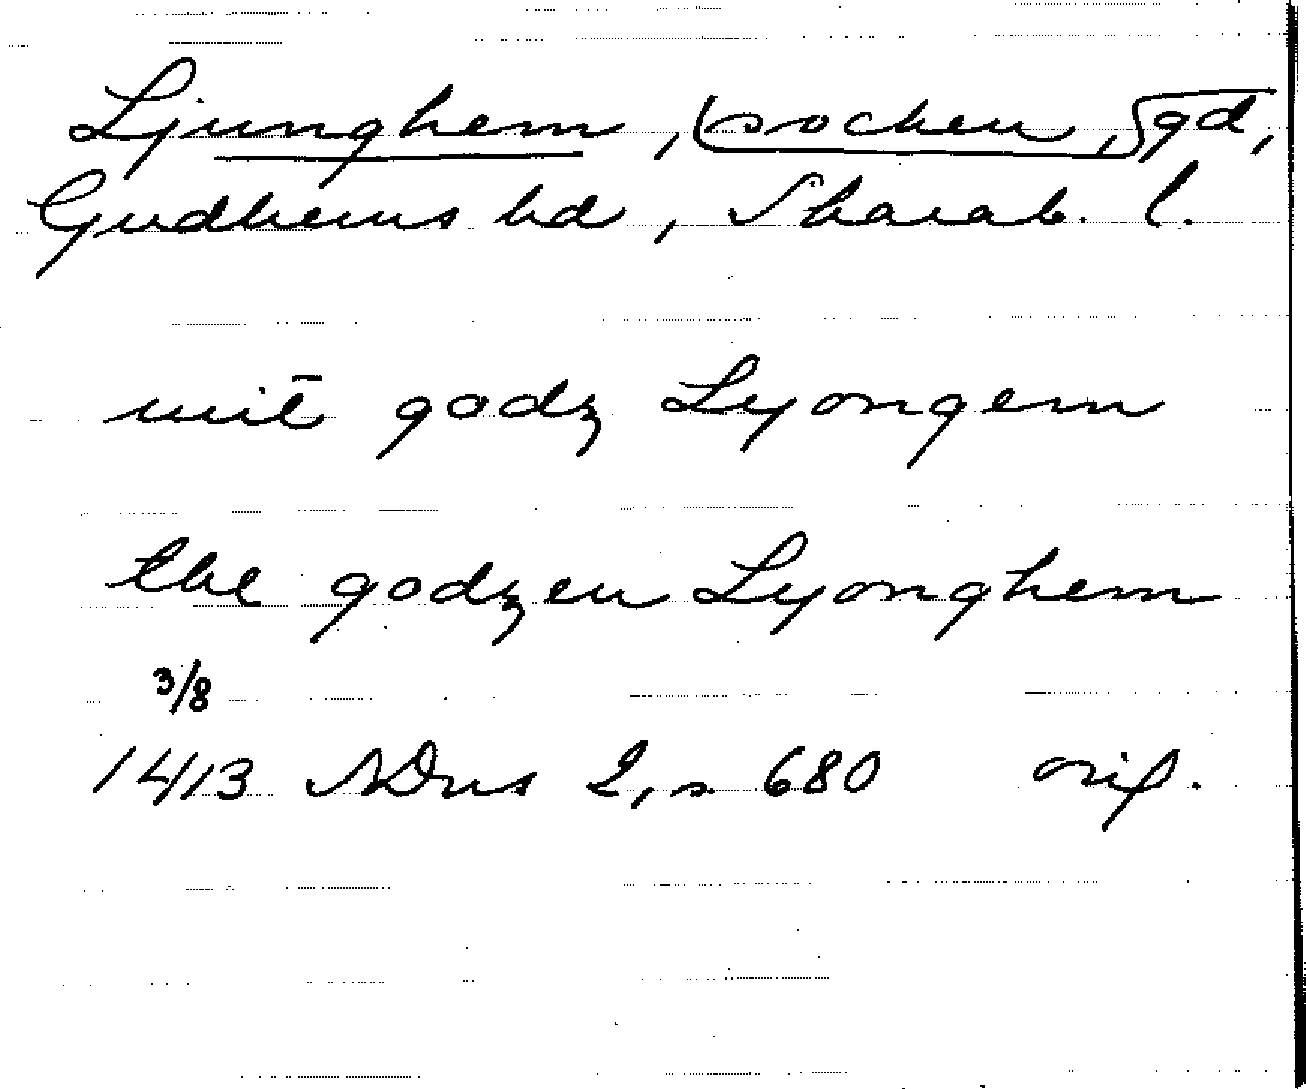 Ljunghem, socken, gd,
Gudhems hd, Skarab. l.
mit̄ godz Lyongem
the godzen Lyonghem
3/8
1413 SDns 2, s. 680 orig.